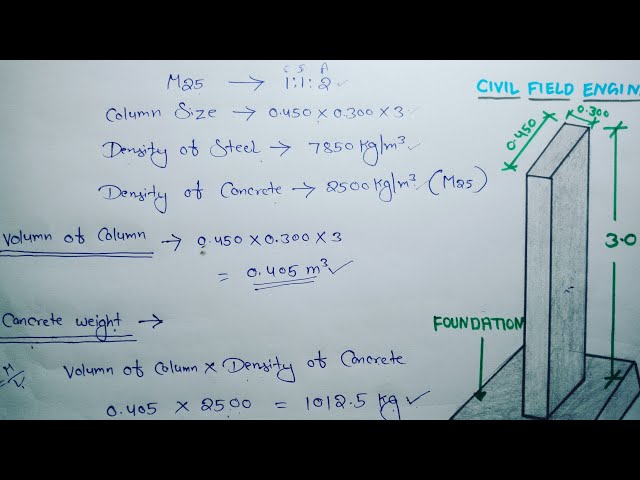 C S A
M25 → 1:1:2 ✓
Column Size → 0.450 x 0.300 x 3
Density of Steel → 7850 kg/m³ ✓
Density of Concrete → 2500 kg/m³ (M25)
Volumn of Column → 0.450 x 0.300 x 3
= 0.405 m³ ✓
Concrete weight →
Volumn of Column x Density of Concrete
0.405 x 2500 = 1012.5 kg ✓
CIVIL FIELD ENGIN
0.450
0.300
3.0
FOUNDATION